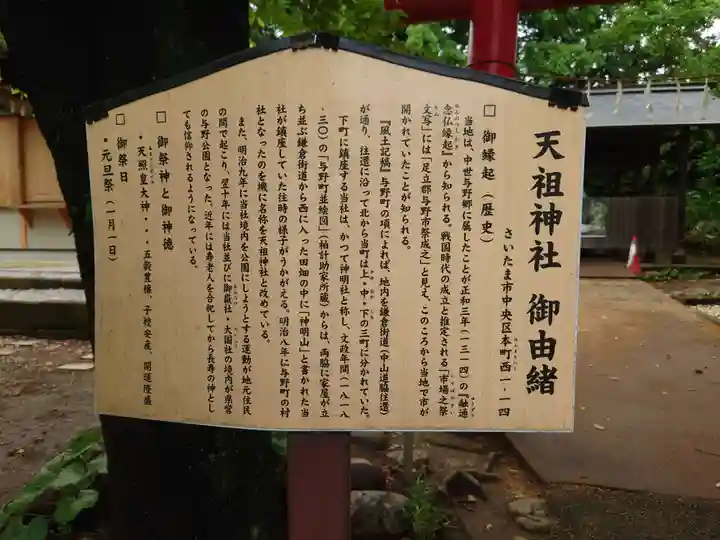 天祖神社 御由緒
さいたま市中央区本町西一‐一四
□ 御縁起（歴史）
当地は、中世与野郷に属したことが正和三年（一三一四）の『融通
念仏縁起』から知られる。戦国時代の成立と推定される「市場之祭
文写」には「足立郡与野市祭成之」と見え、このころから当地で市が
開かれていたことが知られる。
『風土記稿』与野町の項によれば、地内を鎌倉街道（中山道脇往還）
が通り、往還に沿って北から当町は上・中・下の三町に分かれていた。
下町に鎮座する当社は、かつて神明社と称し、文政年間（一八一八
‐三〇）の『与野町並絵図』（稲計助家所蔵）からは、両脇に家屋が立
ち並ぶ鎌倉街道から西に入った田畑の中に「神明山」と書かれた当
社が鎮座していた往時の様子がうかがえる。明治八年に与野町の村
社となったのを機に名称を天祖神社と改めている。
また、明治九年に当社境内を公園にしようとする運動が地元住民
の間で起こり、翌十年には当社並びに御嶽社・大国社の境内が県営
の与野公園となった。近年には寿老人を合祀してから長寿の神とし
ても信仰されるようになっている。
□ 御祭神と御神徳
・天照皇大神・・・五穀豊穣、子授安産、開運隆盛
□ 御祭日
・元旦祭（一月一日）